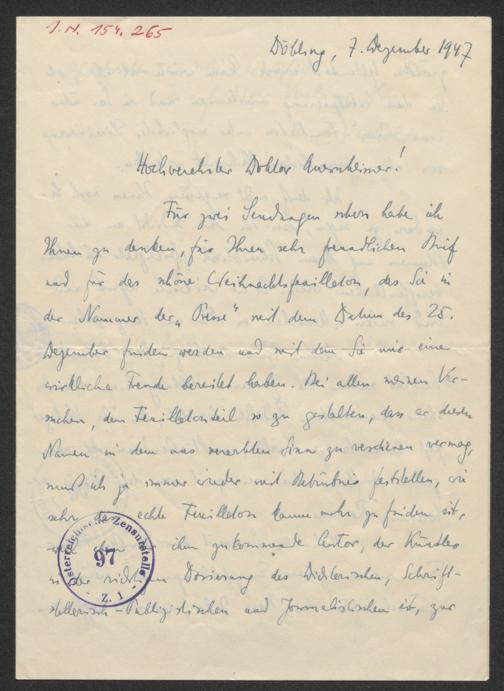 I. N. 154.265
Döbling, 7. Dezember 1947
Hochverehrter Doktor Auernheimer!
Für zwei Sendungen schon habe ich
Ihnen zu danken, für Ihren sehr freundlichen Brief
und für das schöne Weihnachtsfeuilleton, das Sie in
der Nummer der „Presse" mit dem Datum des 25.
Dezember finden werden und mit dem Sie mir eine
wirkliche Freude bereitet haben. Bei allen meinen Ver-
suchen, den Feuilletonteil so zu gestalten, dass er diesen
Namen in dem uns vererbten Sinn zu verdienen vermag,
muß ich ja immer wieder mit Betrübnis feststellen, wie
sehr das echte Feuilleton kaum mehr zu finden ist,
ihm zukommende Autor, der Künstler
in der richtigen Dosierung des Dichterischen, Schrift-
stellerisch-Publizistischen und Journalistischen ist, zur
Österreichische Zensurstelle
97
- Z. 1 -